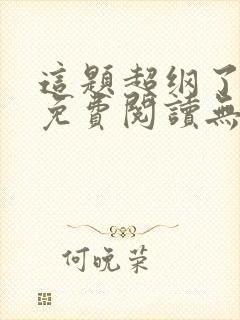 這題超纲了
免費閱讀無
何晚荣